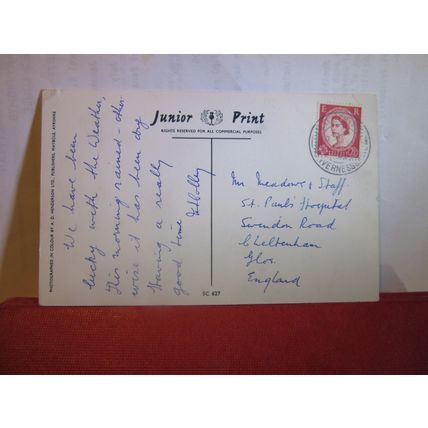 PHOTOGRAPHED IN COLOUR BY A. D. HENDERSON LTD., PUBLISHERS, MAYBOLE, AYRSHIRE
We have been
lucky with the Weather,
this morning rained - other
wise it has been dry
Having a really
good time
Junior Print
RIGHTS RESERVED FOR ALL COMMERCIAL PURPOSES
SC 627
E R
INVERNESS
Mr Meadows & Staff
St. Paul's Hospital
Swendon Road
Cheltenham
Glos.
England